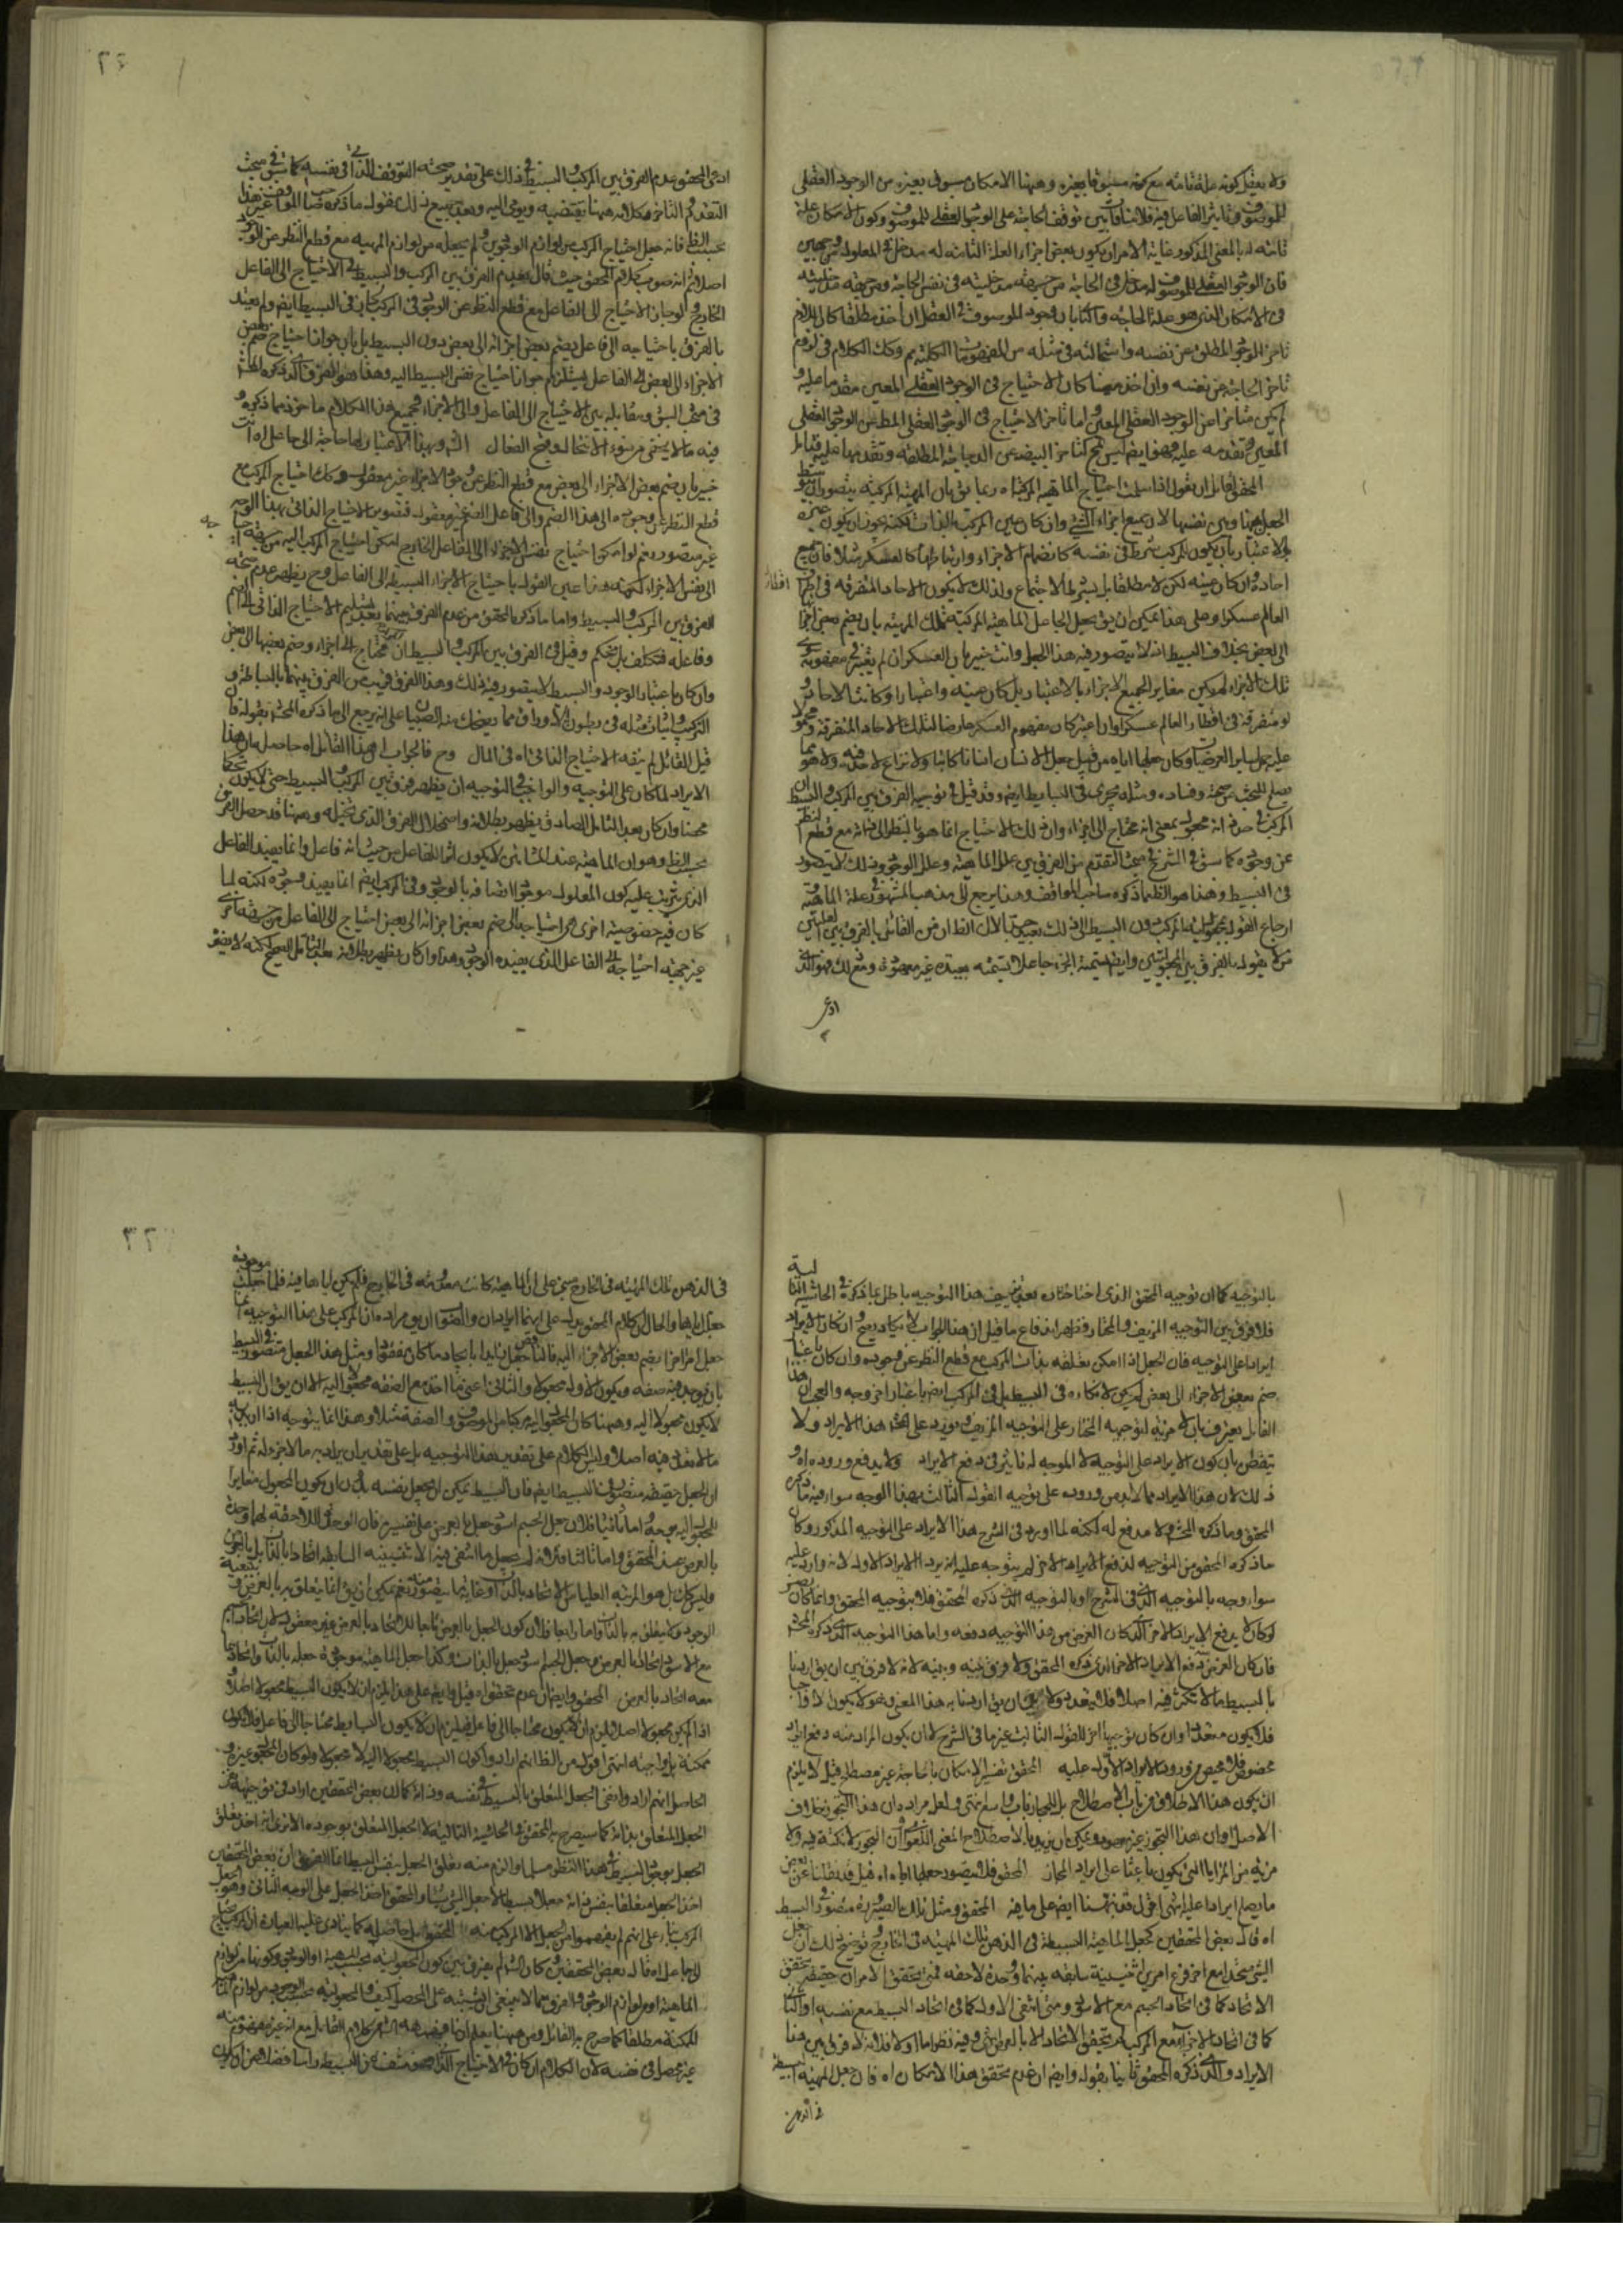 ولا يعقل كونه علة تامة مع كونه مسبوقا بغيره وههنا الامكان مسبوق بغيره من الوجود العقلي
للموصوف وتاثير الفاعل فيه فلا منافاة بين توقف الحاجة على الوجود العقلي للموصوف وكون الامكان علة
تامة لها بالمعنى المذكور غاية الامر ان يكون بعض اجزاء العلة التامة له مدخل في المعلول من جهتين
فان الوجود العقلي للموصوف له مدخل في الحاجة من جهة مدخليته في نفس الحاجة ومن جهة مدخليته
في الامكان الذي هو علة الحاجة واما بان وجود الموصوف في العقل ان اخذ مطلقا كان اللازم
تاخر الوجود المطلق عن نفسه واستحالته في مثله من المفهومات الكلية مم وكك الكلام في لزوم
تاخر الحاجة عن نفسه وان اخذ معينا كان الاحتياج في الوجود العقلي المعين مقدما عليه و
لم يكن متاخرا عن الوجود العقلي المعين واما تاخر الاحتياج في الوجود العقلي المطلق عن الوجود العقلي
المعين وتقدمه عليه فهو ايضا ليس بمح كتاخر البيضة عن الدجاجة المطلقة وتقدمها عليه فتامل
المحقق لقائل ان يقول اذا سلمت احتياج الماهية المركبة اه ربما يق بان المهية المركبة يتصور ان يتوسط
الجعل بينها وبين نفسها لان جميع اجزاء الشيء وان كان عين المركب بالذات لكنه يجوز ان يكون غيره
بالاعتبار بان يكون للمركب شرط في نفسه كانضمام الاجزاء وارتباطها كالعسكر مثلا فان جميع
احاده وان كان عينه لكن لا مطلقا بل بشرط الاجتماع ولذلك لا يكون الاحاد المتفرقة في اقطار
العالم عسكرا وعلى هذا يمكن ان يق يجعل الجاعل الماهية المركبة تلك المهية بان يضم بعض اجزائها
الى البعض بخلاف البسيط فانه لا يتصور فيه هذا الجعل وانت خبير بان العسكر ان لم يعتبر في مفهومه
تلك الاجزاء لم يكن مغايرا لجميع الاجزاء بالاعتبار بل كان عينه واعتبارا وكانت الاحاد و
لو متفرقة في اقطار العالم عسكرا وان اعتبر كان مفهوم العسكر عارضا لتلك الاحاد المتفرقة ومحمولا
عليه حمل ساير العرضيات وكان جعلها اياه من قبيل جعل الانسان انسانا كاتبا ولا نزاع لاحد فيه ولا هو مما
يصلح للبحث عن صحته وفساده ومثله يجري في البسايط ايضا وقد قيل في توجيه الفرق بين المركب والبسيط ان
المركب في حد ذاته مجعول بمعنى انه محتاج الى اجزاء وان ذلك الاحتياج انما هو بالنظر الى ذاته مع قطع النظر
عن وجوده كما سبق في الشرح في مبحث التقدم من الفرق بين علل الماهية وعلل الوجود وذلك لا يتصور
في البسيط وهذا هو الظ مما ذكره صاحب المواقف وهذا يرجع الى مذهب المشهور في علة الماهية
ارجاع القول بمجعولية المركب دون البسيط الى ذلك بعيد جدا
من لا يقول بالفرق بين المجعوليتين وايضا تسمية الجزء جاعلا تسمية بعيدة غير معهودة ومع ذلك فهو الذي
ادعى
ادعى المحقق عدم الفرق بين المركب والبسيط في ذلك على تقدير صحة التوقف الذاتي في نفسه كما سبق في مبحث
التقدم والتاخر وكلامه ههنا يقتضيه ويومي اليه وبعد جميع ذلك يقوله ما ذكره صاحب المواقف غير هذا
بحسب الظ فانه جعل احتياج المركب من لوازم الوجودين ولم يجعله من لوازم المهية مع قطع النظر عن الوجود
اصلا ثم انه صوب كلام المحقق حيث قال بعدم الفرق بين المركب والبسيط في الاحتياج الى الفاعل
الخارج ولو جاز الاحتياج الى الفاعل مع قطع النظر عن الوجود في المركب جاز في البسيط ايضا ولم يعتد
بالفرق باحتياجه الى فاعل يضم بعض اجزائه الى بعض دون البسيط بل بان جواز احتياج ضم بعض
الاجزاء الى البعض الى الفاعل يستلزم جواز احتياج نفس البسيط اليه وهذا هو الفرق الذي ذكره المحشي
في مبحث السبق ومقابله بين الاحتياج الى الفاعل والى الاجزاء فجميع هذا الكلام ماخوذ مما ذكره و
فيه ما لا يخفى من سوء الانتحال وقبح الفعال الش وبهذا الاعتبار لها حاجة الى جاعل اه انت
خبير بان ضم بعض الاجزاء الى بعض مع قطع النظر عن وجود الاجزاء غير معقول وكك احتياج المركب مع
قطع النظر عن وجوده الى هذا الضم والى فاعل الضم غير معقول فتصور الاحتياج الذاتي بهذا الوجه
غير متصور نعم لو امكن احتياج نفس الاجزاء الى الفاعل الخارج امكن احتياج المركب اليه من حيث احتياجه
الى نفس الاجزاء لكنه هذا عين القول باحتياج الاجزاء البسيطة الى الفاعل وح يظهر عدم صحة
الفرق بين المركب والبسيط واما ما ذكره المحقق من عدم الفرق بينهما بعد تسليم الاحتياج الذاتي الى الضم
وفاعله فتكلف بل تحكم وقيل في الفرق بين المركب والبسيط ان المركب محتاج الى اجزاء وضم بعضها الى بعض
وان كان باعتبار الوجود والبسيط لا يتصور فيه ذلك وهذا الفرق قريب من الفرق بينهما بالبساطة و
التركيب واثبات مثله في بطون الاوراق مما يضحك منه الصبيان على انه يرجع الى ما ذكره المحشي بقوله فان
قيل القائل لم ينف الاحتياج الذاتي اه في المال وح فالجواب اي هذا القائل اه حاصله ان هذا
الايراد لما كان على التوجيه والواجب في التوجيه ان يظهر فرق بين المركب والبسيط حتى لا يكون تحكما
محضا وان كان بعد التامل الصادق يظهر بطلانه واضمحلال الفرق الذي تخيله وههنا قد حصل الفرق
بحسب الظ وهو ان الماهية عند المشائين لا يكون اثرا للفاعل من حيث انه فاعل وانما يفيد الفاعل
الذي يترتب عليه كون المعلول موجودا اتصافه بالوجود وفي المركب ايضا انما يفيد وجوده لكنه لما
كان فيه خصوصية اخرى هي احتياجه الى ضم بعض اجزائه الى بعض احتياج الى الفاعل من جهة اخرى
غير جهة احتياجه الى الفاعل الذي يفيده الوجود وهذا وان كان يظهر بطلانه بعد التامل الصحيح لكنه لا يضر
بالتوجيه كما ان توجيه المحقق الذي اختاره بعد تزييف هذا التوجيه باطل بما ذكره في الحاشية التالية
فلا فرق بين التوجيه المزيف والمختار وقد ظهر اندفاع ما قيل ان هذا الجواب لا يكاد يصح ان كان الايراد
ايرادا على التوجيه فان الجعل اذا امكن تعلقه بذات المركب مع قطع النظر عن وجوده وان كان باعتبار
ضم بعض الاجزاء الى بعض لم يكن لانكاره في البسيط بل في المركب ايضا باعتبار اخر وجه والعجب ان هذا
القائل يعترف بان لا مزية لتوجيهه المختار على التوجيه المزيف ويورد على المحشي هذا الايراد ولا
يتفطن بان كون الايراد على التوجيه لا الموجه له تاثير في دفع الايراد ولا يدفع وروده اه و
ذلك لان هذا الايراد مما لا بد من وروده على توجيه القول الثالث بهذا الوجه سواء فيه ما ذكره
المحقق وما ذكره المحشي ولا مدفع له لكنه لما اورد في الشرح هذا الايراد على التوجيه المذكور وكان
ما ذكره المحقق من التوجيه لدفع الايراد الاخر لم يتوجه عليه انه يرد الايراد الاول لانه وارد عليه
سواء وجه بالتوجيه الذي في الشرح او بالتوجيه الذي ذكره المحقق فلا يضر بتوجيه المحقق وانما كان
لو كان لا يدفع الايراد الاخر الذي كان الغرض من هذا التوجيه دفعه واما هذا التوجيه الذي ذكره المحشي
فان كان الغرض منه دفع الايراد الاخر الذي ذكره المحقق ولا فرق بينه وبينه لانه لا فرق بين ان يق اردنا
بالبسيط ما لا تكثر فيه اصلا فلا يتعدد ولا ان يق اردنا به هذا المعنى وهو لا يكون الا واجبا
فلا يكون متعددا وان كان توجيها اخر للقول الثالث غير ما في الشرح لا ان يكون المراد منه دفع ايراد
مخصوص فلا محيص من ورود الايراد الاول عليه المحقق تفسير الامكان بالحاجة غير مصطلح قيل لا يلزم
ان يكون هذا الاطلاق من باب الاصطلاح بل للمجاز باب واسع انتهى ولعل مراده ان هذا التجوز بخلاف
الاصل وان هذا التجوز غير معهود ويمكن ان يريد بالاصطلاح المعنى اللغوي ان التجوز لا نكتة فيه ولا
مزية من المزايا التي يكون باعثا على ايراد المجاز المحقق فلا يتصور جعلها اياه اه قيل قد نقلنا عن بعض
ما يصلح ايرادا عليه انتهى اقول قد نبهنا ايضا على ما فيه المحقق ومثل تلك الصيرورة متصور في البسيط
اه قال بعض المحققين كجعل الماهية البسيطة في الذهن تلك المهية في الخارج وتوضيح ذلك ان جعل
الشيء متحدا مع اخر فرع امرين اثنينية سابقة بينهما ووحدة لاحقة فمتى تحقق الامران حقيقة يتحقق
الاتحاد كما في اتحاد الجسم مع الاسود ومتى انتفى الاول كما في اتحاد البسيط مع نفسه او الثاني
كما في اتحاد الاجزاء مع المركب لم يتحقق الاتحاد الا بالعرض انتهى وفيه نظر اما اولا فلانه لا فرق بين هذا
الايراد والذي ذكره المحقق ثانيا بقوله وايضا ان عدم تحقق هذا الامكان اه فان جعل المهية البسيطة
في الذهن
في الذهن تلك المهية في الخارج مبني على ان الماهية كانت معدومة في الخارج فلم يكن اياها فيه فلما جعلت موجودة
جعل اياها والحال ان كلام المحقق يدل على انهما ايرادان والصواب ان يق مراده ان المركب على هذا التوجيه
جعل امرا من انضم بعض الاجزاء اليه
بان يوجد فيه صفة ويكون الاول مجعولا والثاني اعني ما اخذ مع الصفة مجعولا اليه الا ان يق ان البسيط
لا يكون مجعولا اليه وههنا كان المجعول اليه مركبا من الموصوف والصفة مثلا وهذا انما يتوجه اذا اريد به
ما لا تعدد فيه اصلا وليس الكلام على تقدير هذا التوجيه بل على تقدير ان يراد به ما لا جزء له ثم اورد
ان الجعل حقيقة متصور في البسيط ايضا فان البسيط يمكن ان يجعل نفسه بان ان يكون المجعول مغايرا
للمجعول اليه بوجه واما ثانيا فلان جعل الجسم اسود جعل بالعرض على تفسيره فان الوجود اللاحقة لهما وحدة
بالعرض عند المحقق واما ثالثا فلانه لم يجعل ما انتفى فيه الاثنينية السابقة اتحادا بالذات بل بالعرض
وليس كك بل هو المرتبة العليا من الاتحاد بالذات وغاية ما يتصور منه نعم يمكن ان يق انما يتعلق به بالعرض وتبعية
الوجود ولا يتعلق به بالذات واما رابعا فلان كون الجعل بالعرض تابعا للاتحاد بالعرض غير معقول لان اتحاد الجسم
مع الاسود اتحاد بالعرض وجعل الجسم اسود جعل بالذات وكذا جعل الماهية موجودة جعله بالذات واتحادها
معه اتحاد بالعرض المحقق وايضا ان عدم تحقق اه قيل فايضا على هذا يلزم ان لا يكون البسيط مجعولا اصلا و
اذا لم يكن مجعولا اصلا يلزم ان لا يكون محتاجا الى فاعل فيلزم ان لا يكون البسايط محتاجا الى فاعل فلا يكون
ممكنة بل واجبة انتهى اقول من الظ انهم ارادوا كون البسيط مجعولا اليه لا مجعولا ولو كان المجعول غيره و
الحاصل انهم ارادوا نفي الجعل المتعلق بالبسيط في نفسه وذاته كما ان بعض المحققين اراد في توجيهه نفي
الجعل المتعلق بذاته كما سيصرح به المحقق في الحاشية التالية لا الجعل المتعلق بوجوده الا ترى انه اخذ تعلق
الجعل بوجود البسيط في هذا النظر مسلما والزم منه تعلق الجعل بنفس البسيط غاية الفرق ان بعض المحققين
اخذ الجعل متعلقا بنفس ذاته جعلا بسيطا لا جعل الشيء شيئا والمحقق اخذ الجعل على الوجه الثاني وهو الجعل
المركب بناء على انهم لم يفهموا من الجعل الا المركب منه المحقق بل حاصله كما ينادي عليه العبارة ان المركب يحتاج
الى جاعل اه قال بعض المحققين وكان الش لم يفرق بين كون المجعولية بحسب المهية او الوجود وكونها من لوازم
الماهية او من لوازم الوجود والفرق مما لا ينبغي ان يشتبه على المحصل كيف والمجعولية بحسب الوجود من لوازم الماهية
الممكنة مطلقا كما صرح به القائل ومن ههنا يعلم ان
غير محصل في نفسه لان الكلام ان كان في الاحتياج الذاتي فهو منتف عن البسيط راسا فضلا عن ان يكون